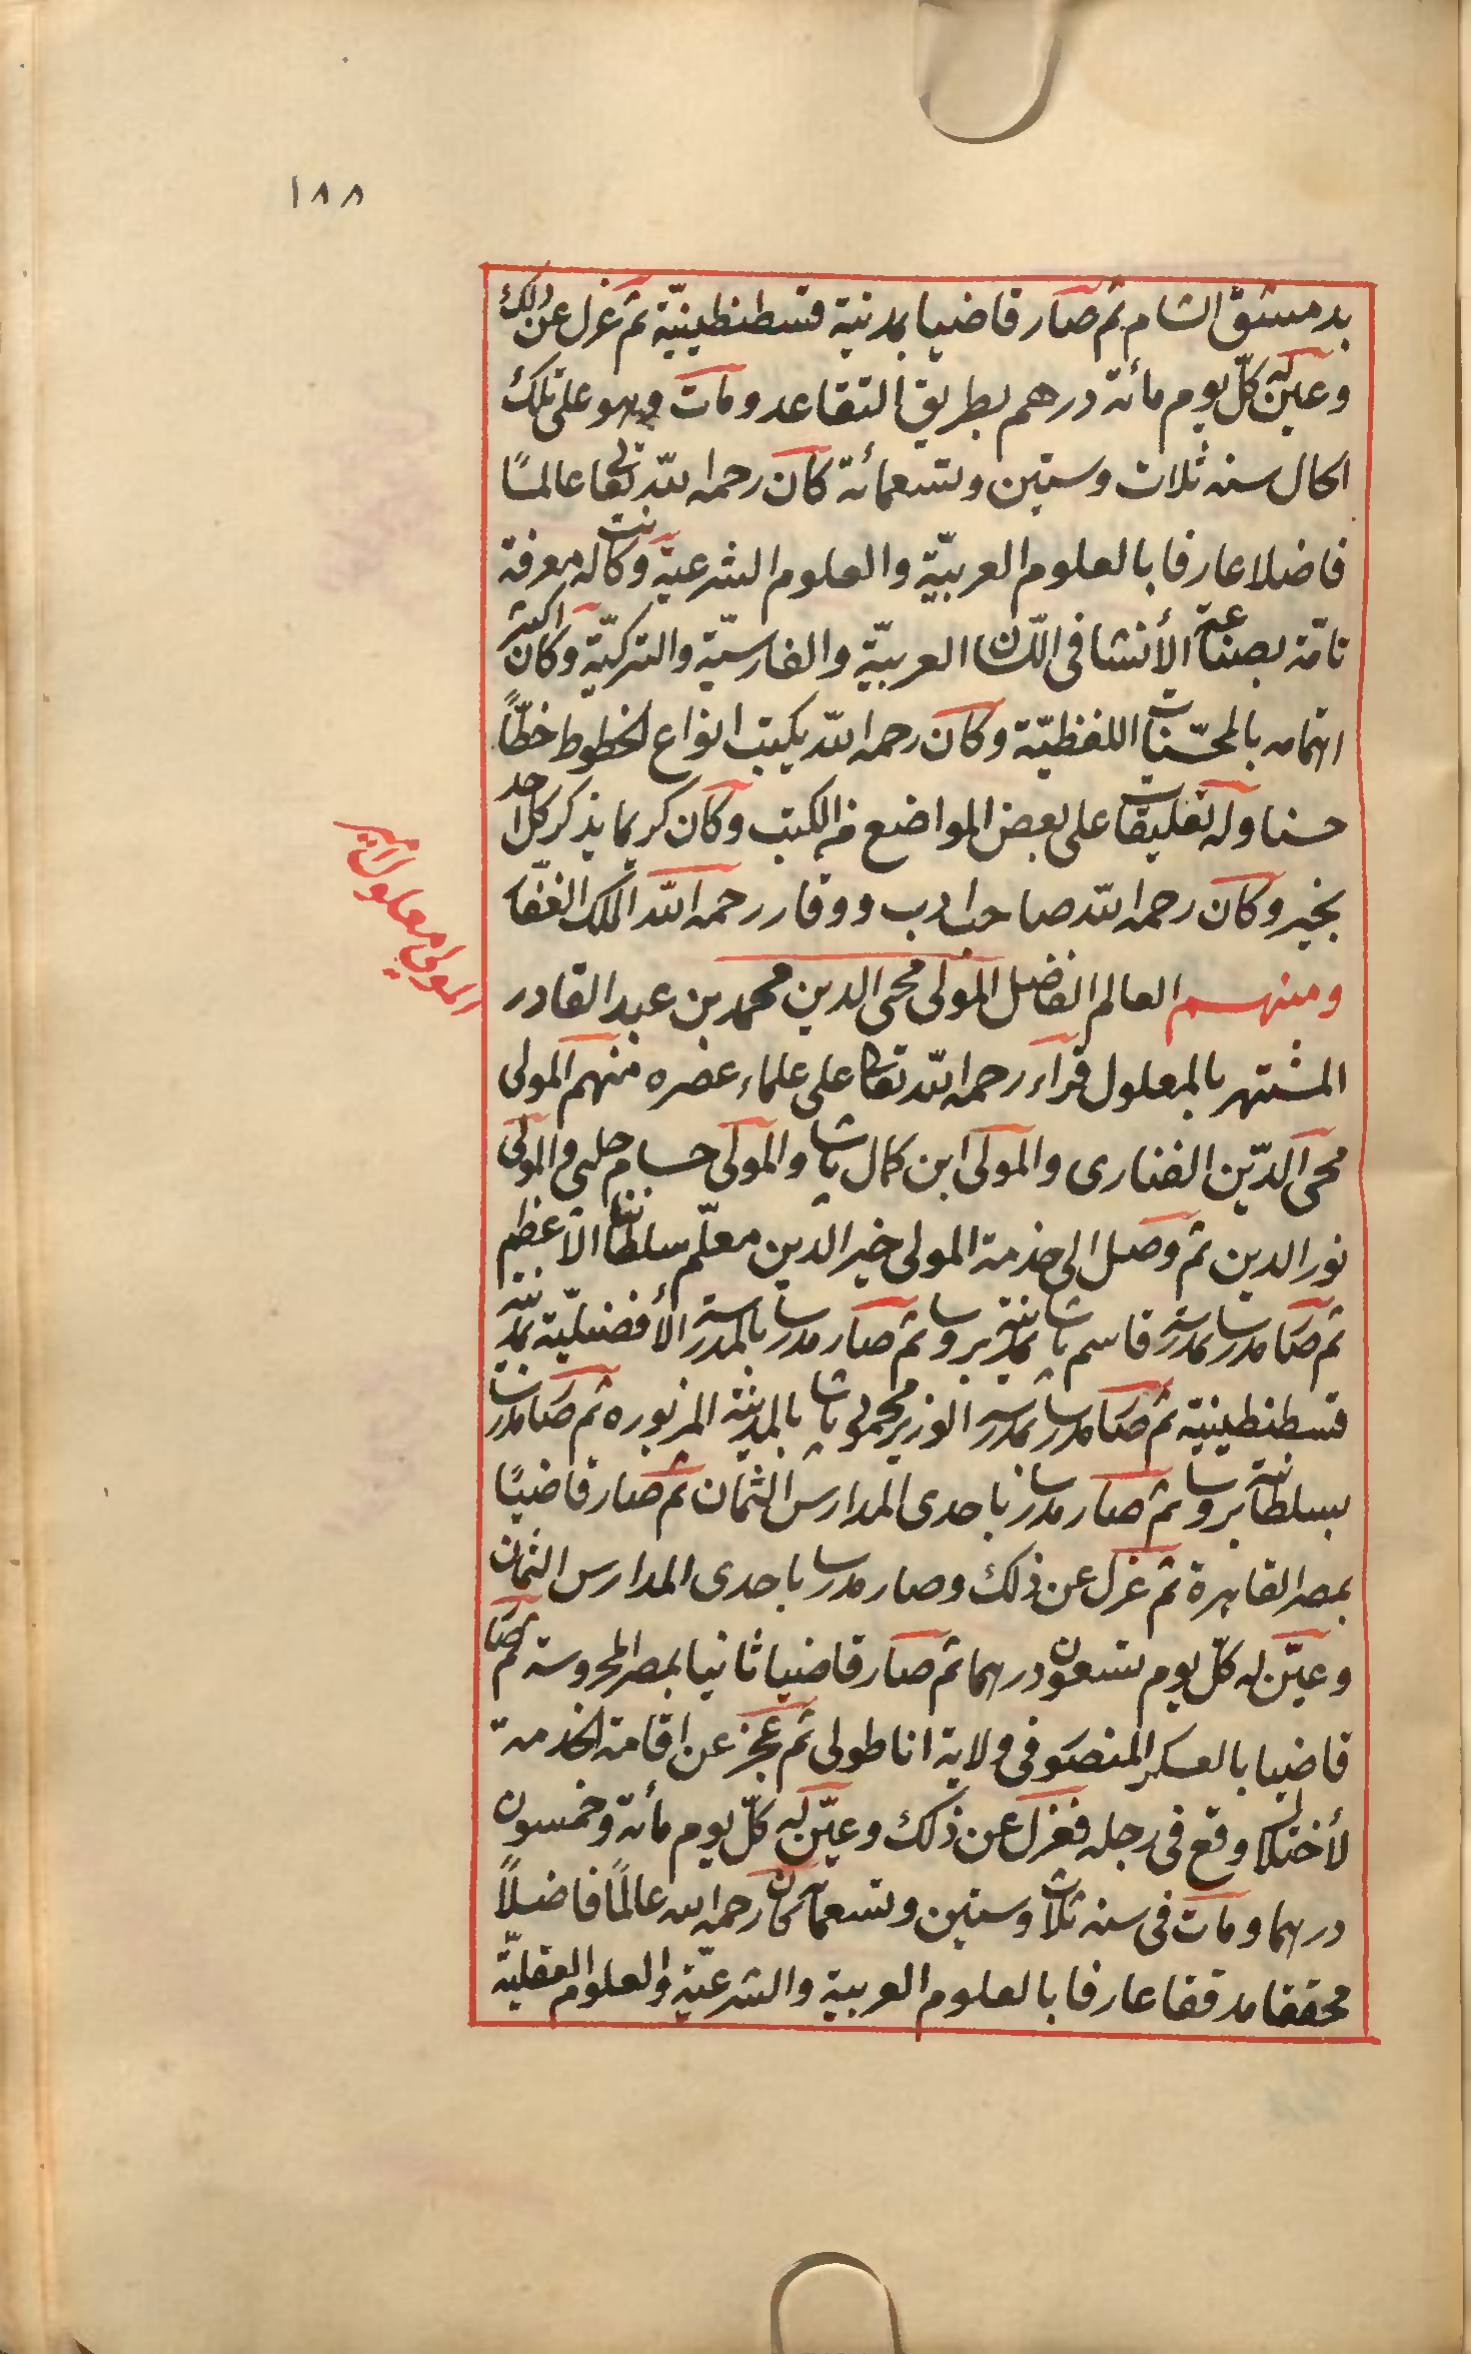 ١٨٨
بدمشق الشام ثم صار قاضيا بمدينة قسطنطينيّة ثم عزل عن ذلك
وعيّن له كلّ يوم مأئة درهم بطريق التقاعد ومات وهو على تلك
الحال سنه ثلاث وستين وتسعمائة كان رحمه الله تعالى عالمًا
فاضلا عارفا بالعلوم العربيّة والعلوم الشرعيّة وكانت له معرفة
تامّة بصناعة الأنشا فى اللّسان العربيّة والفارسيّة والتركيّة وكان اكثر
اهتمامه بالمحسّنات اللفظيّة وكان رحمه الله يكتب انواع الخطوط خطّاً
حسنا وله تعليقات على بعض المواضع من الكتب وكان كريما يذكر كل احد
بخير وكان رحمه الله صاحب ادب ووقار رحمه الله الملك الغفّار
ومنهم العالم الفاضل المولى محى الدين محمد بن عبد القادر
المشتهر بالمعلول قرأء رحمه الله تعالى على علماء عصره منهم المولى
محى الدّين الفنارى والمولى ابن كمال پاشا والمولى حسام چلبى والمولى
نور الدين ثم وصل الى خدمة المولى خير الدين معلّم سلطاننا الأعظم
ثم صار مدرسا بمدرسة قاسم پاشا بمدينة بروسا ثم صار مدرسا بالمدرسة الأفضليّة بمدينة
قسطنطينية ثم صار مدرسا بمدرسة الوزير محمود پاشا بالمدينة المزبوره ثم صار مدرسا
بسلطانية بروسا ثم صار مدرسا باحدى المدارس الثمان ثم صار قاضيًا
بمصر القاهرة ثم عزل عن ذلك وصار مدرسا باحدى المدارس الثمان
وعيّن له كلّ يوم تسعون درهما ثم صار قاضيا ثانيا بمصر المحروسة ثم صار
قاضيا بالعسكر المنصور فى ولاية اناطولى ثم عجز عن اقامة الخدمة
لأختلال وقع فى رجله فعزل عن ذلك وعيّن له كلّ يوم مأئة وخمسون
درهما ومات فى سنه ثلاث وستين وتسعمائة كان رحمه الله عالمًا فاضلاً
محققا مدققا عارفا بالعلوم العربية والشرعيّة والعلوم العقليّة
المولى معلول امير